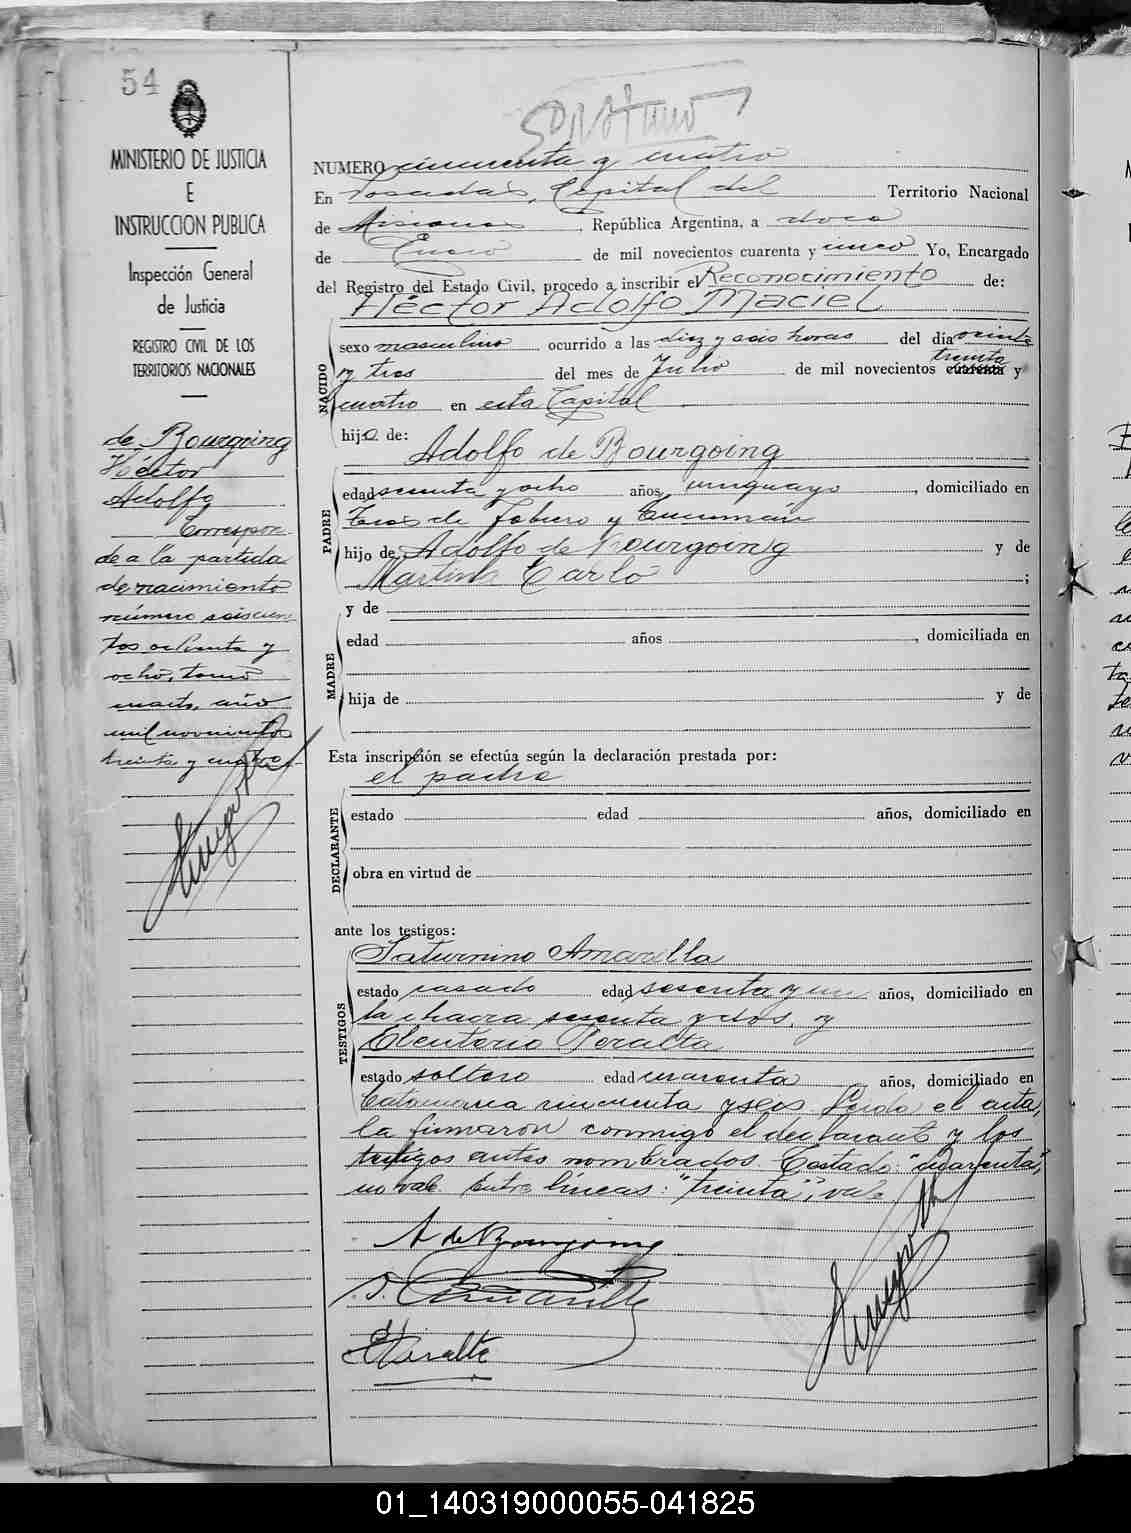 54
MINISTERIO DE JUSTICIA
E
INSTRUCCION PUBLICA
Inspección General
de Justicia
REGISTRO CIVIL DE LOS
TERRITORIOS NACIONALES
de Bourgoing
Héctor
Adolfo
Correspon
de a la partida
de nacimiento
número seiscien
tos ochenta y
ocho, tomo
cuarto, año
mil novecientos
treinta y cuatro
NUMERO cincuenta y cuatro
En Posadas, Capital del Territorio Nacional
de Misiones, República Argentina, a doce
de Enero de mil novecientos cuarenta y cinco Yo, Encargado
del Registro del Estado Civil, procedo a inscribir el Reconocimiento de:
Héctor Adolfo Maciel
NACIDO
sexo masculino ocurrido a las diez y seis horas del día veinte
treinta
y tres del mes de Julio de mil novecientos cuarenta y
cuatro en esta Capital
hijo de:
Adolfo de Bourgoing
PADRE
edad sesenta y ocho años, uruguayo, domiciliado en
Tres de Febrero y Tucumán
hijo de Adolfo de Bourgoing y de
Martina Carlo;
y de
MADRE
edad años, domiciliada en
hija de y de
Esta inscripción se efectúa según la declaración prestada por:
el padre
DECLARANTE
estado edad años, domiciliado en
obra en virtud de
ante los testigos:
TESTIGOS
Saturnino Amarilla
estado casado edad sesenta y un años, domiciliado en
la chacra sesenta y dos, y
Eleuterio Peralta
estado soltero edad cuarenta años, domiciliado en
Catamarca cincuenta y seis Leida el acta,
la firmaron conmigo el declarante y los
testigos antes nombrados. Testado: "cuarenta",
no vale. Entre líneas: "treinta", vale
A de Bourgoing
S. Amarilla
E Peralta
01_140319000055-041825